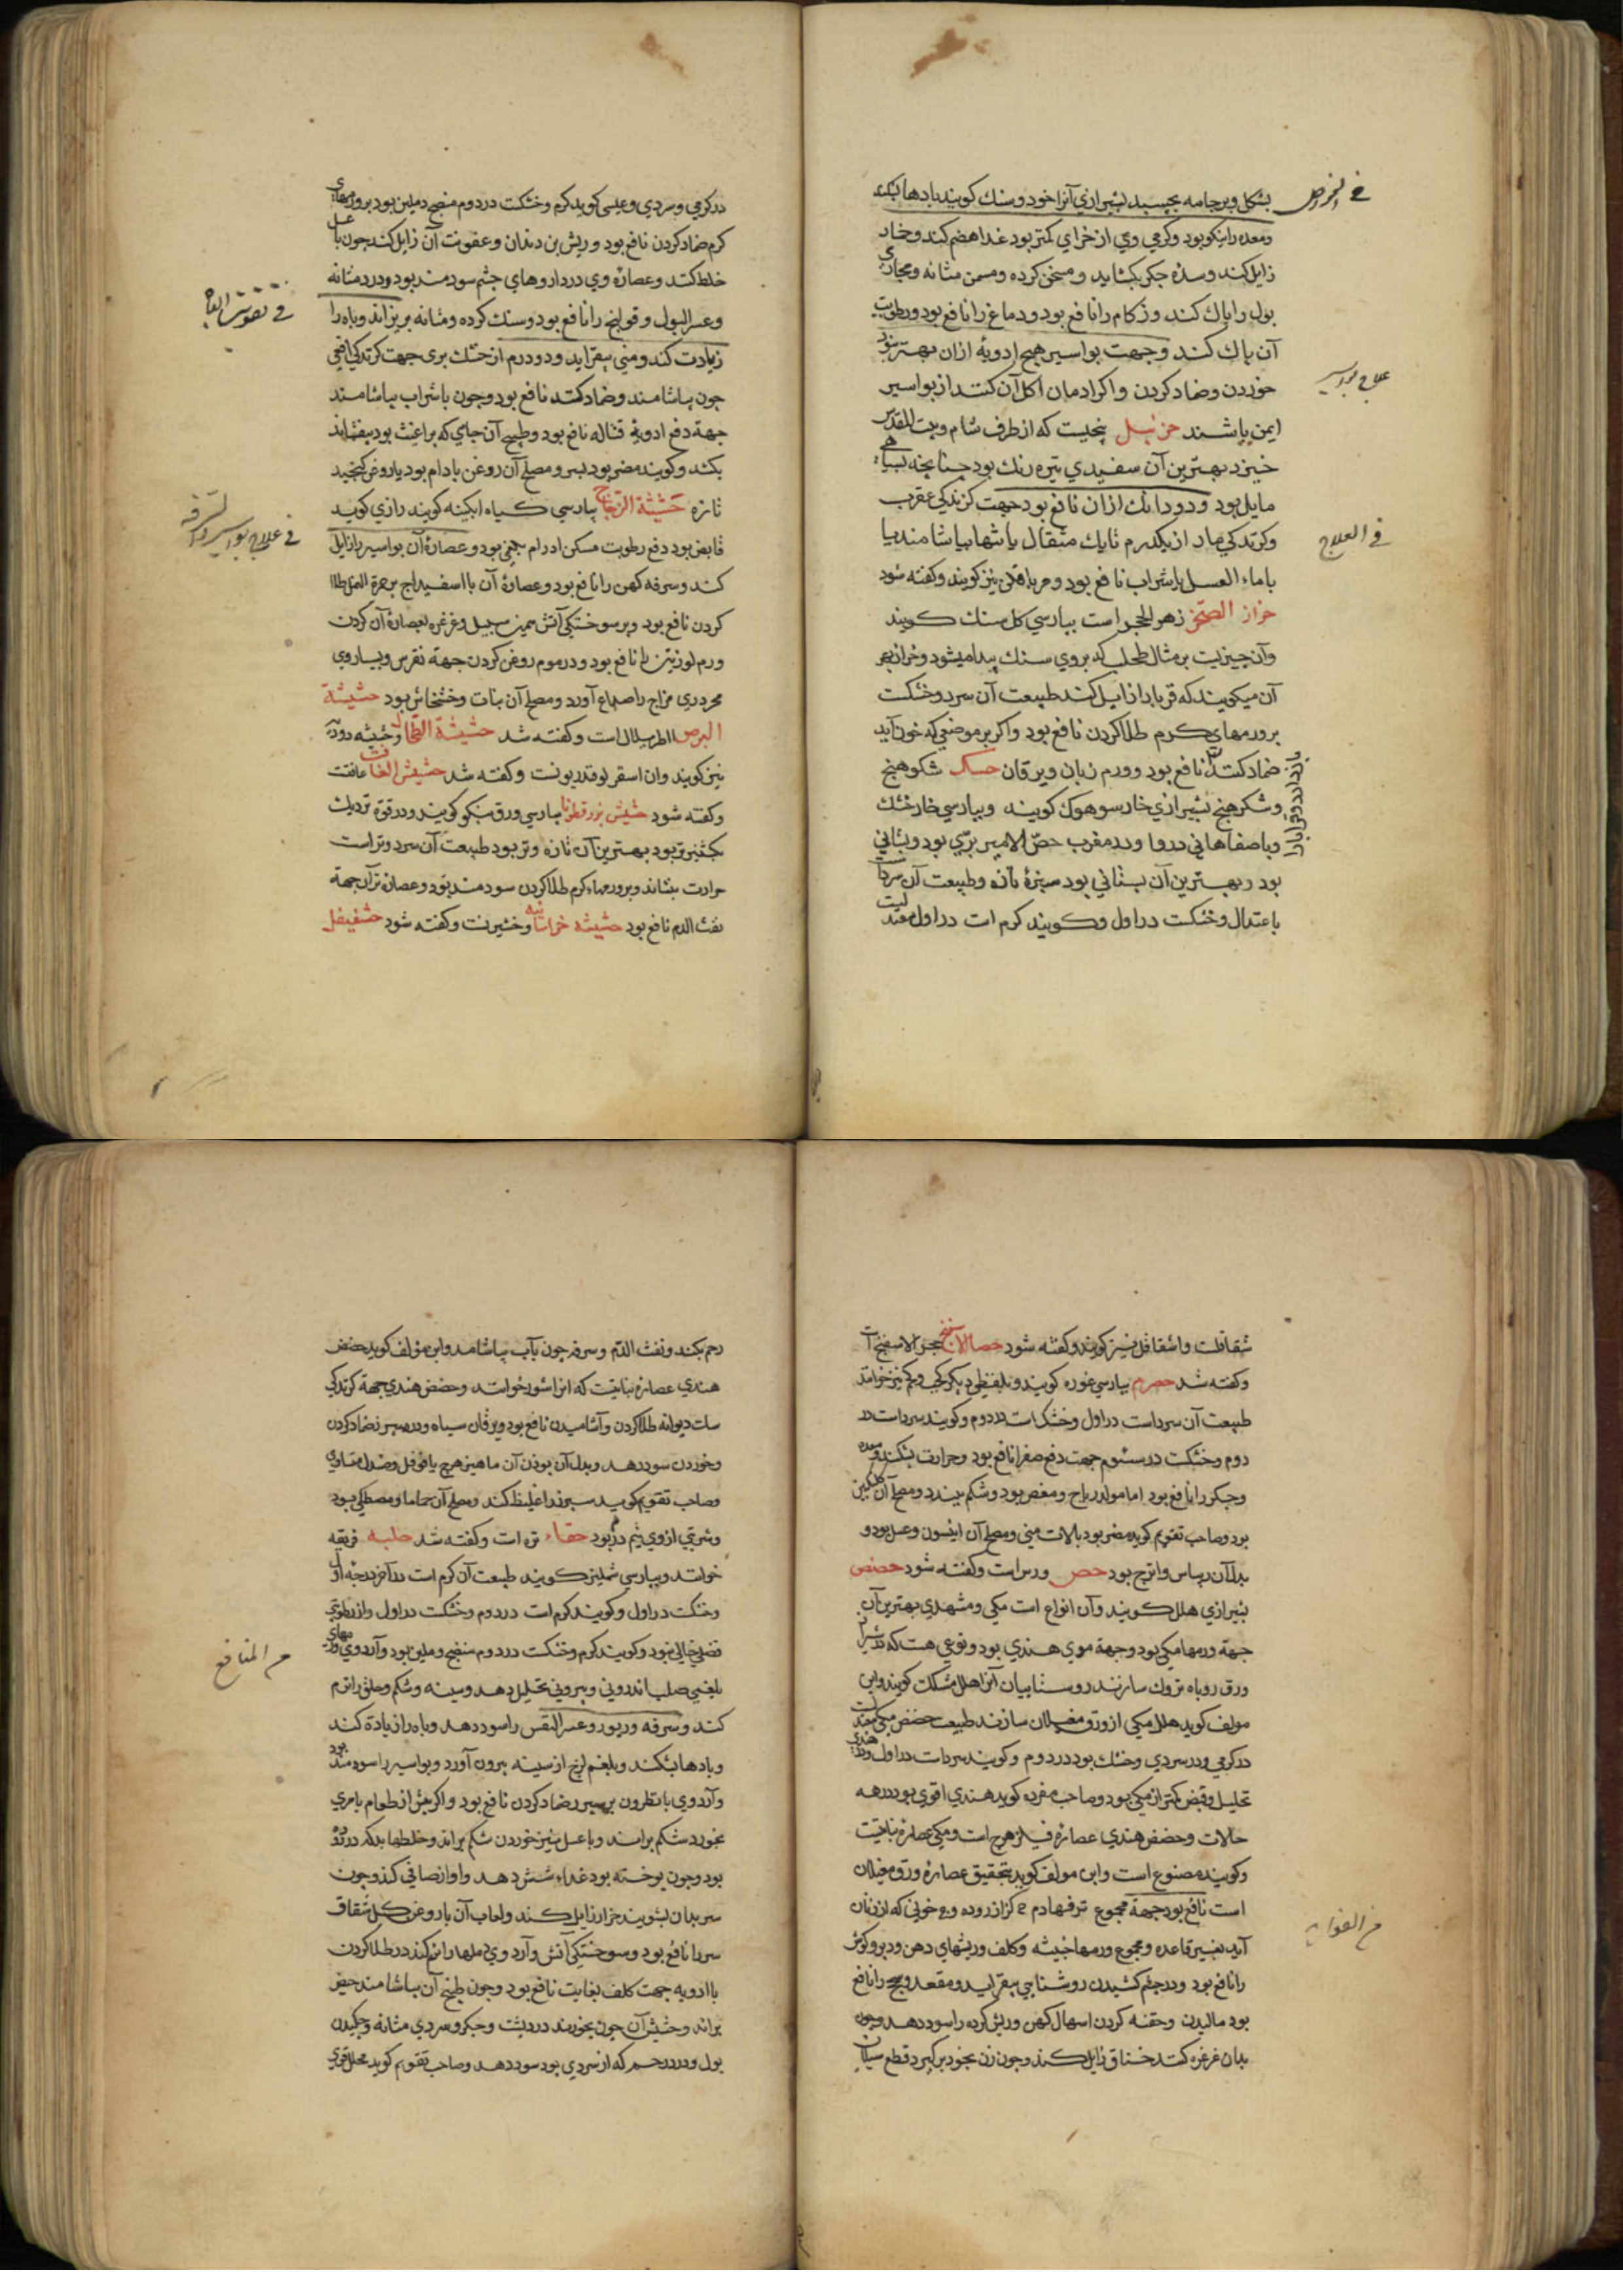 بشکل و بر جامه بچسبد بشیرازی آنرا خود وسنك کویند بادها بشکند
ومعده را نیکو بود وکرمی وی از خرای کمتر بود غذا هضم کند وخار
زایل کند وسده جکر بکشاید و مسخن کرده و مسمن مثانه و مجاری
بول را پاك کند و زکام را نافع بود و دماغ را نافع بود و رطوبت
آن پاك کند وجهت بواسیر هیچ ادویة ازان بهتر نبود
خوردن وضماد کردن واکر ادمان اکل آن کنند از بواسیر
ایمن باشند حزنبل بیخیست که از طرف شام وبیت المقدس
خیزد بهترین آن سفیدی تیره رنك بود چنانچه بسیاهی
مایل بود و دودانك ازان نافع بود جهت کزندکی عقرب
وکزندکی مار از یکدرم تا یك مثقال یا تنها بیاشامند یا
با ماء العسل یا شراب نافع بود و مریافلن نیز کویند وکفته شود
حزاز الصخر زهر الحجر است بپارسی کل سنك کویند
وآن چیزیست بر مثال طحلب که بروی سنك پیدا میشود وحزاز بهر
آن میکویند که قربا را زایل کند طبیعت آن سرد وخشکست
برورمهای کرم طلا کردن نافع بود واکر بر موضعی که خون آید
ضماد کنند نافع بود وورم زبان ویرقان حسك شکوهنج
وشکرهنج بشیرازی خارسوهوك کویند وبپارسی خارخسك
وباصفاهانی دروا ودر مغرب حمص الامیر بری بود وبستانی
بود وبهترین آن بستانی بود سبزه تازه وطبیعت آن سردست
باعتدال وخشکست در اول وکویند کرم است در اول معتدلیست
فی الخواص
علاج بواسیر
فی العلاج
در کرمی وسردی وعیسی کوید کرم وخشکست در دوم منضج وملین بود برورمهای
کرم ضماد کردن نافع بود وریش بن دندان وعفونت آن زایل کند چون با عسل
خلط کنند وعصارۀ وی در داروهای چشم سودمند بود ودرد مثانه
وعسر البول وقولنج را نافع بود وسنك کرده ومثانه بریزاند وباه را
زیادت کند ومنی بیفزاید ودودرم از حسك بری جهت کزندکی افعی
چون بیاشامند وضماد کنند نافع بود وچون با شراب بیاشامند
جهة دفع ادویۀ قتاله نافع بود وطبیخ آن جای که براغیث بود بیفشانند
بکشد وکویند مضر بود بسر ومصلح آن روغن بادام بود یا روغن کنجید
تازه حشیشة الزجاج بپارسی کیاه ابکینه کویند رازی کوید
قابض بود دفع رطوبت مسکن اورام بلغمی بود وعصارۀ آن بواسیر را زایل
کند وسرفه کهن را نافع بود وعصارۀ آن با اسفیداج بر حمرة النمل طلا
کردن نافع بود وبر سوختکی آتش همین سبیل وغرغره بعصارۀ آن کردن
ورم لوزتین را نافع بود ودر موم روغن کردن جهة نقرس وبسیار وی
محروری مزاج را صداع آورد ومصلح آن نبات وخشخاش بود حشیشة
البرص اطریلال است وکفته شد حشیشة الطحال وحشیشه دودیه
نیز کویند وان اسقولوقندریونست وکفته شد حشیش الغافت غافتست
وکفته شود حشیش بزرقطونا بپارسی ورق بنکو کویند ودر قوة نزدیك
بکشنیز تر بود بهترین آن تازه وتر بود طبیعت آن سرد وتر است
حرارت بنشاند وبرورمهاء کرم طلا کردن سودمند بود وعصاره تر آن جهة
نفث الدم نافع بود حشیشه خراسانیه وخشیزست وکفته شود حشفیفل
فی تقویت الباه
فی علاج بواسیر والسرفه
شقاقلست واشقاقل نیز کویند وکفته شود حصا الاسفنج حجر الاسفنج است
وکفته شد حصرم بپارسی غوره کویند وبلفظی دیکر کحب وکحم نیز خوانند
طبیعت آن سرداست در اول وخشکست در دوم وکویند سرداست در
دوم وخشکست در سئوم جهت دفع صفرا نافع بود وحرارت بشکند ومعده
وجکر را نافع بود اما مولد ریاح ومغص بود وشکم ببندد ومصلح آن کلنکبین
بود وصاحب تقویم کوید مضر بود بالات منی ومصلح آن انیسون وعسل بود و
بدل آن ریباس واترج بود حص ورس است وکفته شود حضض
بشیرازی هلل کویند وآن انواع است مکی ومشهدی بهترین آن
جهة ورمها مکی بود وجهة موی هندی بود ونوعی هست که در شیراز
ورق روباه تروك سازند روستاییان آنرا هلل مشکك کویند واین
مولف کوید هلل مکی از ورق مغیلان سازند طبیعت حضض مکی معتدلست
در کرمی ودر سردی وخشك بود در دوم وکویند سردست در اول وهندی در
تحلیل وقبض کمتر از مکی بود وصاحب مفرده کوید هندی اقوی بود در همه
حالات وحضض هندی عصارۀ فیلزهرج است ومکی عصارۀ نباتیست
وکویند مصنوع است واین مولف کوید بتحقیق عصارۀ ورق مغیلان
است نافع بود جهة مجموع نزفها دم که از روده وخونی که از زنان
آید بغیر قاعده ومجموع ورمها خبیثه وکلف وریشهای دهن ودبر وکوش
را نافع بود ودر چشم کشیدن روشنایی بیفزاید ومقعد را نافع
بود مالیدن وحقنه کردن اسهال کهن وریش کرده را سود دهد وچون
بدان غرغره کنند خناق زایل کند وچون زن بخود برکیرد قطع سیلان
رحم بکند ونفث الدم وسرفه چون بآب بیاشامند واین مؤلف کوید حضض
هندی عصارۀ نباتیست که انرا اسور خوانند وحضض هندی جهة کزندکی
سك دیوانه طلا کردن وآشامیدن نافع بود ویرقان سیاه وورم سپرز ضماد کردن
وخوردن سود دهد وبدل آن بوزن آن ماهیزهرج یا فوفل وصندل مساوی
وصاحب تقویم کوید سپرز را غلیظ کند ومصلح آن حماما ومصطکی بود
وشربتی از وی نیم درم بود حفاء تره است وکفته شد حلبه فریقه
خوانند وبپارسی شملیز کویند طبیعت آن کرم است در آخر درجۀ اول
وخشکست در اول وکویند کرم است در دوم وخشکست در اول واز رطوبتی
فضلی خالی نبود وکویند کرم وخشکست در دوم منضج وملین بود وآرد وی ورمهای
بلغمی صلب اندرونی وبیرونی تحلیل دهد وسینه وشکم وحلق را نرم
کند وسرفه وربو وعسر النفس را سود دهد وباه را زیادة کند
وبادها بشکند وبلغم لزج از سینه بیرون آورد وبواسیر را سودمند بود
وآرد وی با نطرون بر سپرز ضماد کردن نافع بود واکر پیش از طعام با مری
بخورد شکم براند وبا عسل نیز خوردن شکم براند وخلطها بد که در روده
بود وچون پوخته بود غذاء شش دهد واواز صافی کند وچون
سر بدان بشویند حزاز زایل کند ولعاب آن با روغن کل شقاق
سر را نافع بود وسوختکی آتش وآرد وی دملها را نرم کند در طلا کردن
با ادویه جهت کلف بغایت نافع بود وچون طبیخ آن بیاشامند حیض
براند وحشیش آن چون بخورند درد پشت وجکر وسردی مثانه وچکیدن
بول ودرد رحم که از سردی بود سود دهد وصاحب تقویم کوید محلل قوی
من المنافع
من الفواید